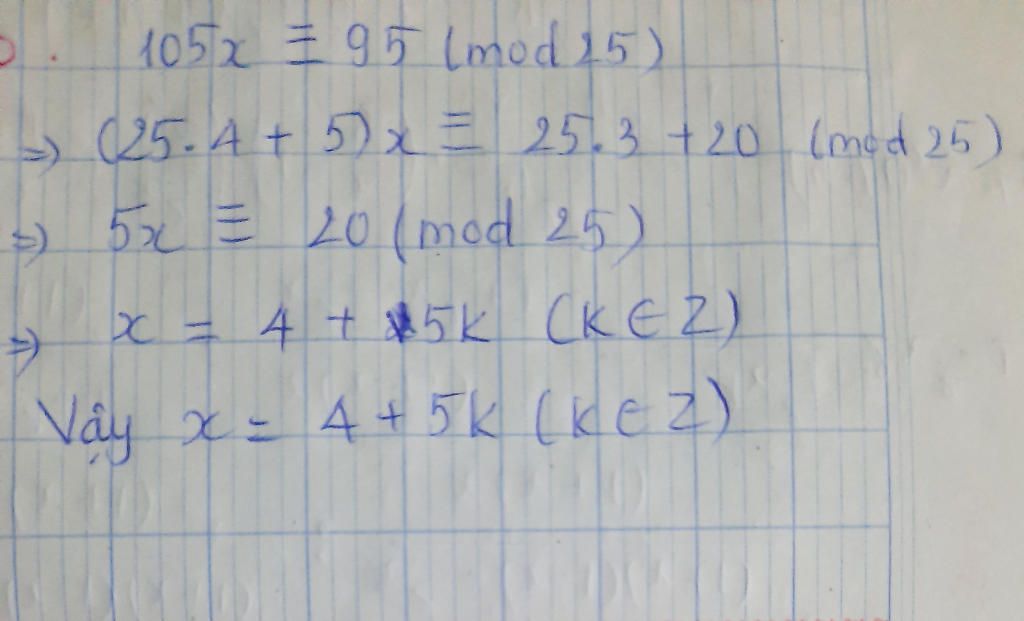 105x ≡ 95 (mod 25)
⇒ (25.4 + 5)x ≡ 25.3 + 20 (mod 25)
⇒ 5x ≡ 20 (mod 25)
⇒ x = 4 + 5k (k ∈ Z)
Vậy x = 4 + 5k (k ∈ Z)